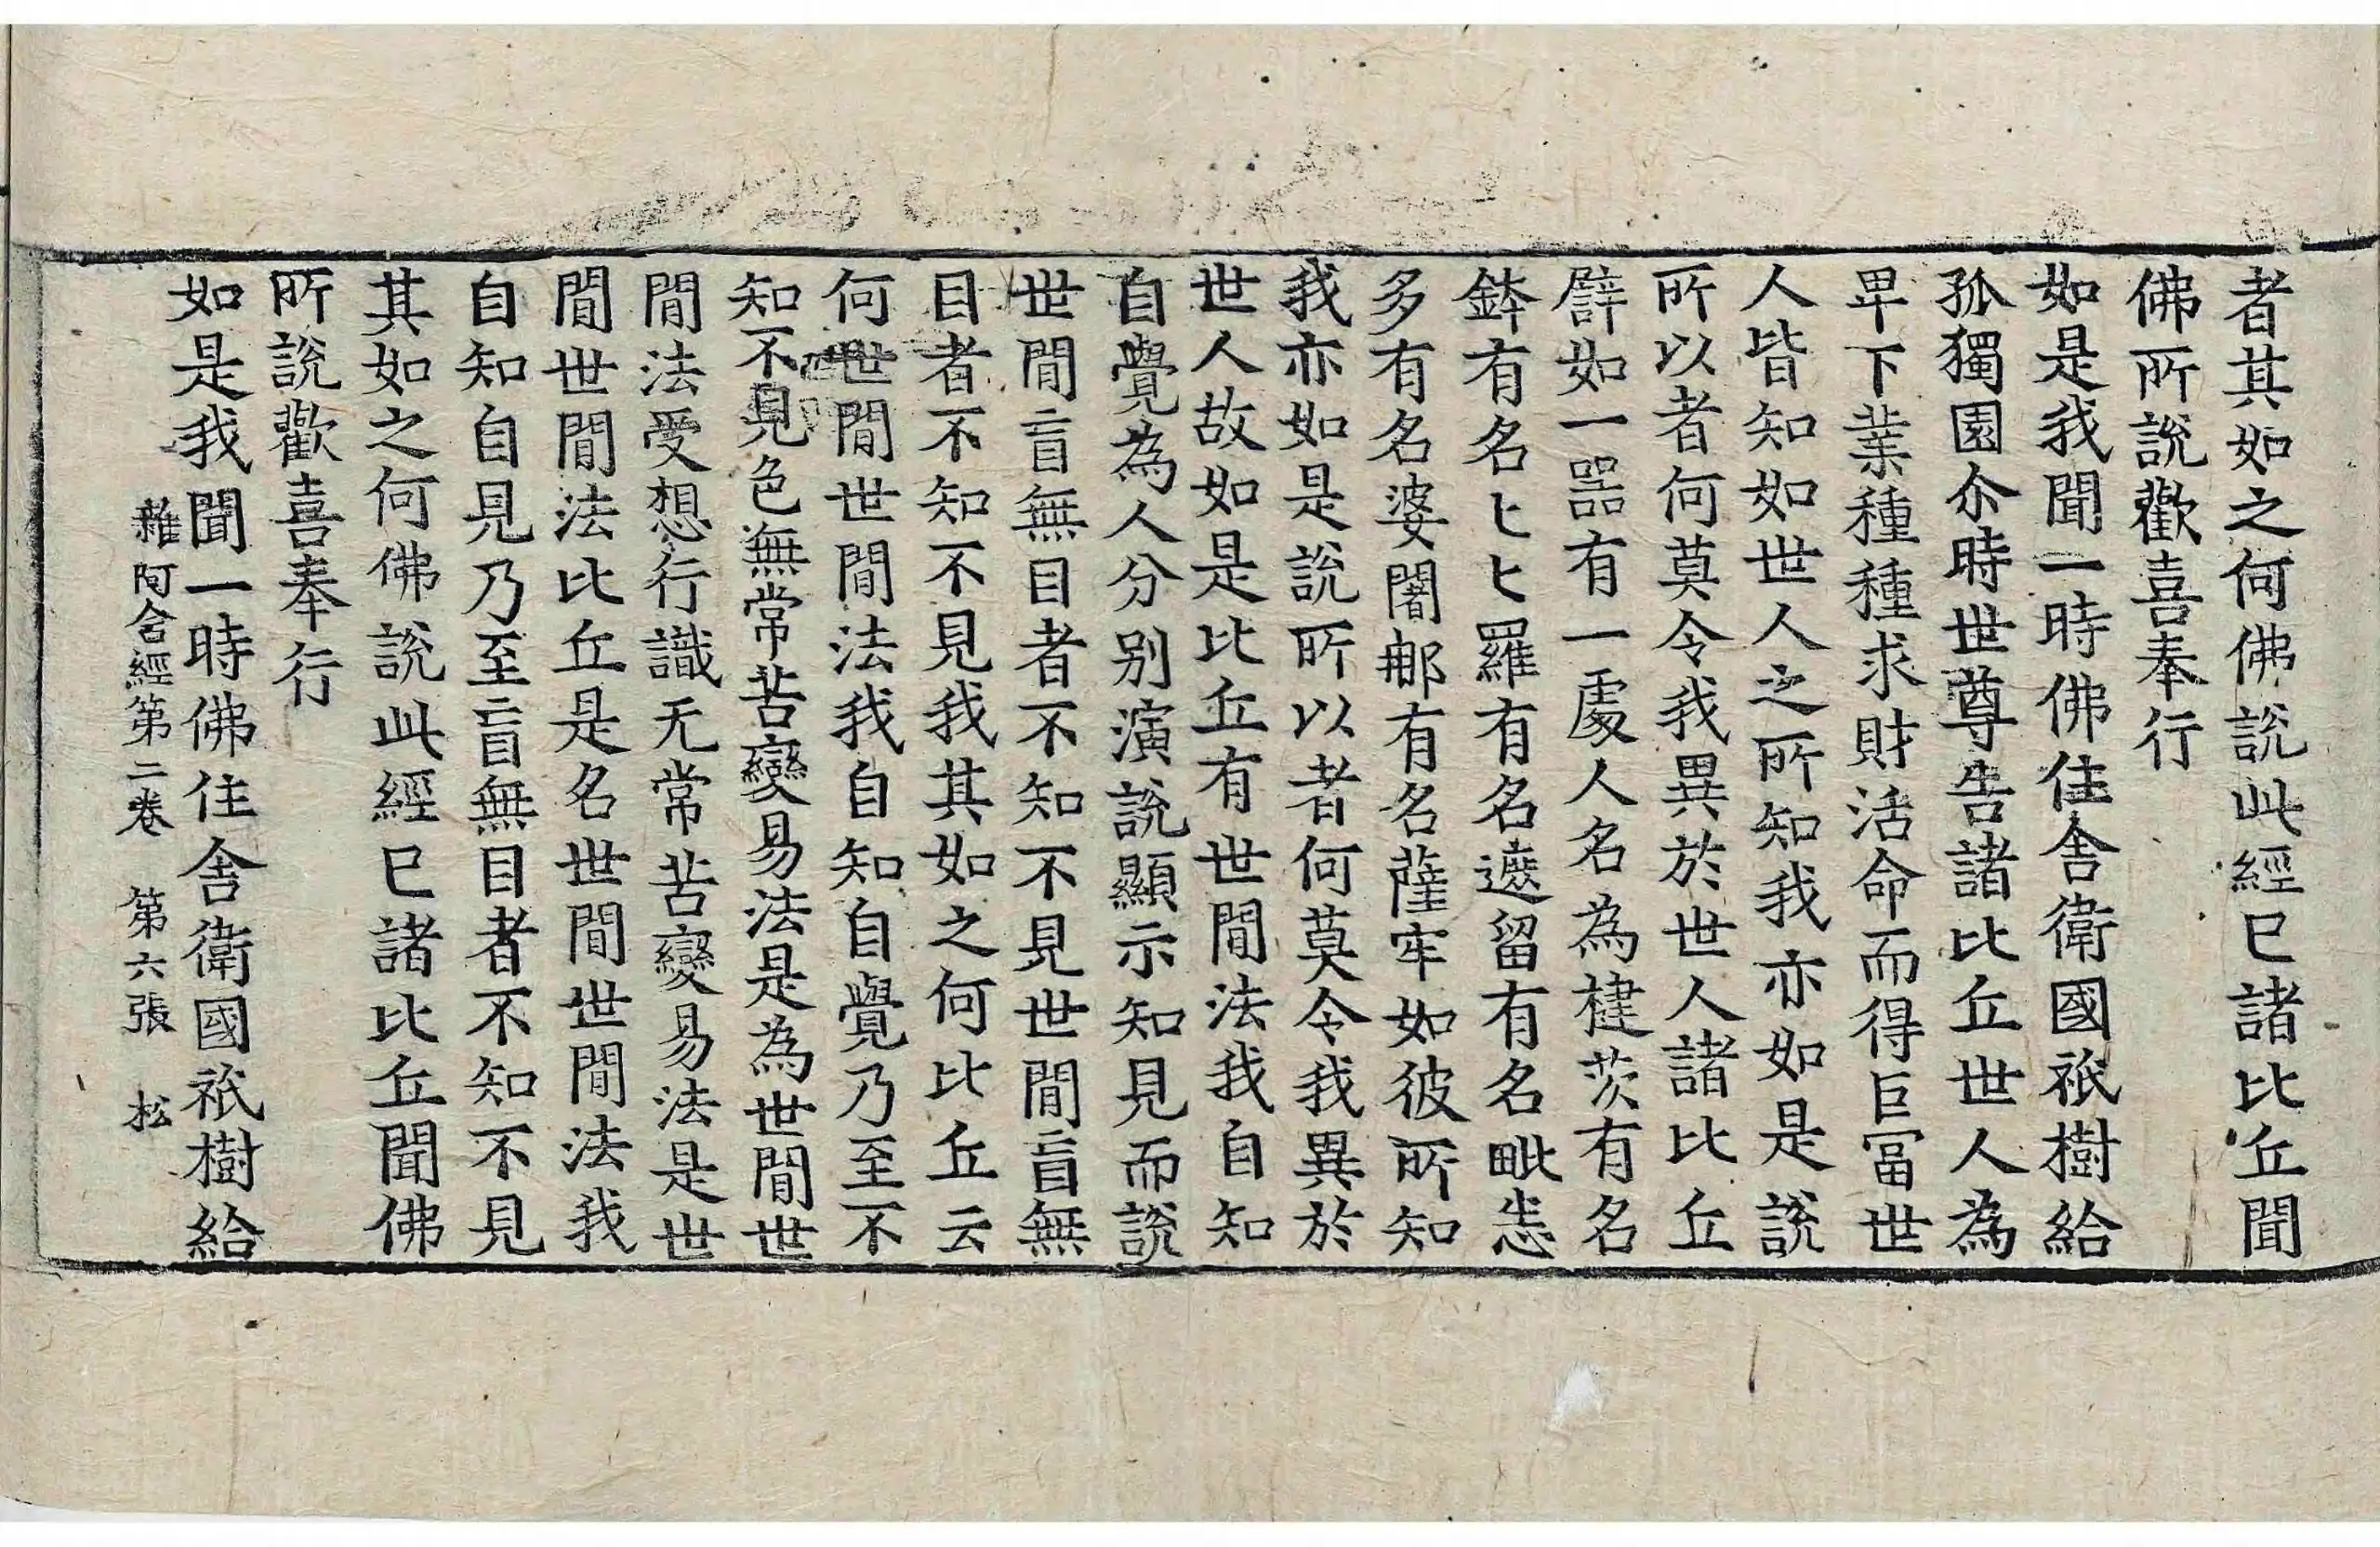 者其如之何佛說此經已諸比丘聞
佛所說歡喜奉行
如是我聞一時佛住舍衛國祇樹給
孤獨園尒時世尊告諸比丘世人為
卑下業種種求財活命而得巨冨世
人皆知如世人之所知我亦如是說
所以者何莫令我異於世人諸比丘
譬如一器有一處人名為揵茨有名
鉢有名匕匕羅有名遮留有名毗悉
多有名婆闍那有名薩牢如彼所知
我亦如是說所以者何莫令我異於
世人故如是比丘有世間法我自知
自覺為人分別演說顯示知見而說
世間盲無目者不知不見世間盲無
目者不知不見我其如之何比丘云
何世間世間法我自知自覺乃至不
知不見色無常苦變易法是為世間世
間法受想行識无常苦變易法是世
間世間法比丘是名世間世間法我
自知自見乃至盲無目者不知不見
其如之何佛說此經已諸比丘聞佛
所說歡喜奉行
如是我聞一時佛住舍衛國祇樹給
雜阿含經第二卷 第六張 松